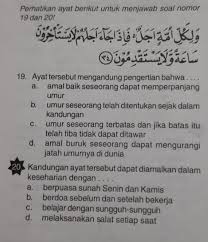 Perhatikan ayat berikut untuk menjawab soal nomor
19 dan 20!
وَلِكُلِّ أُمَّةٍ أَجَلٌ ۖ فَإِذَا جَاءَ أَجَلُهُمْ لَا يَسْتَأْخِرُونَ
سَاعَةً وَلَا يَسْتَقْدِمُونَ ﴿٣٤﴾
19. Ayat tersebut mengandung pengertian bahwa . . . .
a. amal baik seseorang dapat memperpanjang
umur
b. umur seseorang telah ditentukan sejak dalam
kandungan
c. umur seseorang terbatas dan jika batas itu
telah tiba tidak dapat ditawar
d. amal buruk seseorang dapat mengurangi
jatah umurnya di dunia
20. Kandungan ayat tersebut dapat diamalkan dalam
keseharian dengan . . . .
a. berpuasa sunah Senin dan Kamis
b. berdoa sebelum dan setelah bekerja
c. belajar dengan sungguh-sungguh
d. melaksanakan salat setiap saat